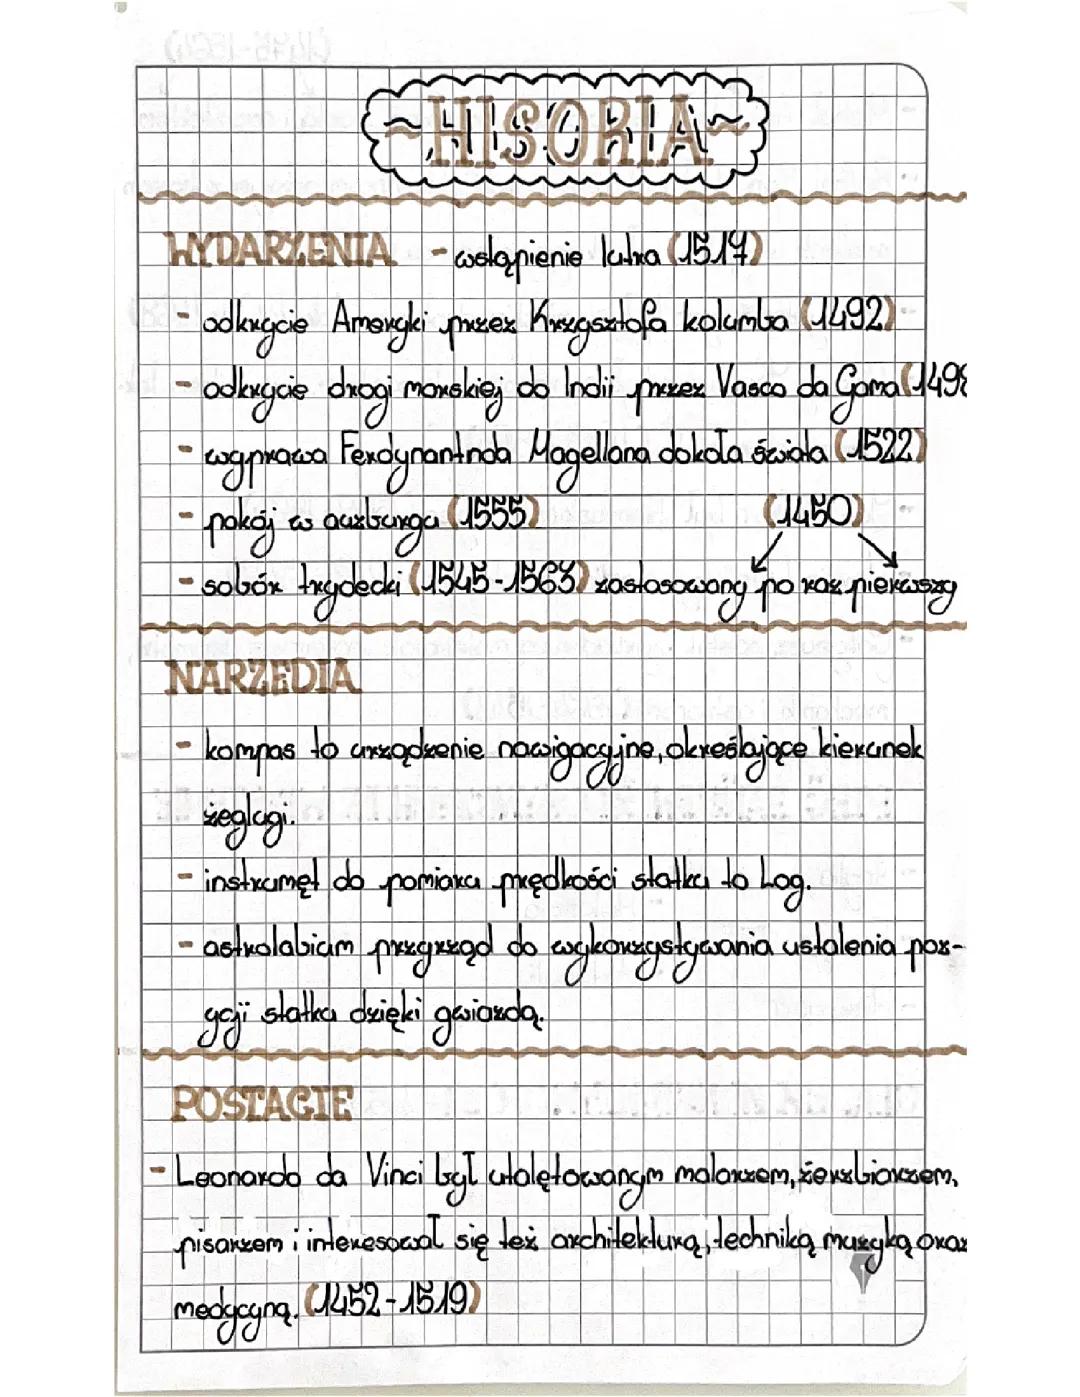 ~HISORIA~
WYDARZENIA - wstąpienie lutra (1517)
- odkrycie Ameryki przez Krzysztofa kolumba (1492)
- odkrycie drogi morskiej do Indii przez Vasco da Gama (1498
- wyprawa Ferdynantnda Magellana dokoła świata (1522)
- pokój w auzburgu (1555) (1450)
- sobór trydecki (1545-1563) zastosowany po raz pierwszy
NARZEDIA
- kompas to urządzenie nawigacyjne, określające kierunek
żeglugi.
- instrumęt do pomiaru prędkości statku to Log.
- astrolabium przyrząd do wykorzystywania ustalenia poz-
ycji statku dzięki gwiazdą.
POSTACIE
- Leonardo da Vinci był utalętowanym malarzem, żerzbiarzem,
pisarzem i interesował się też architekturą, techniką muzyką oraz
medycyną. (1452-1519)